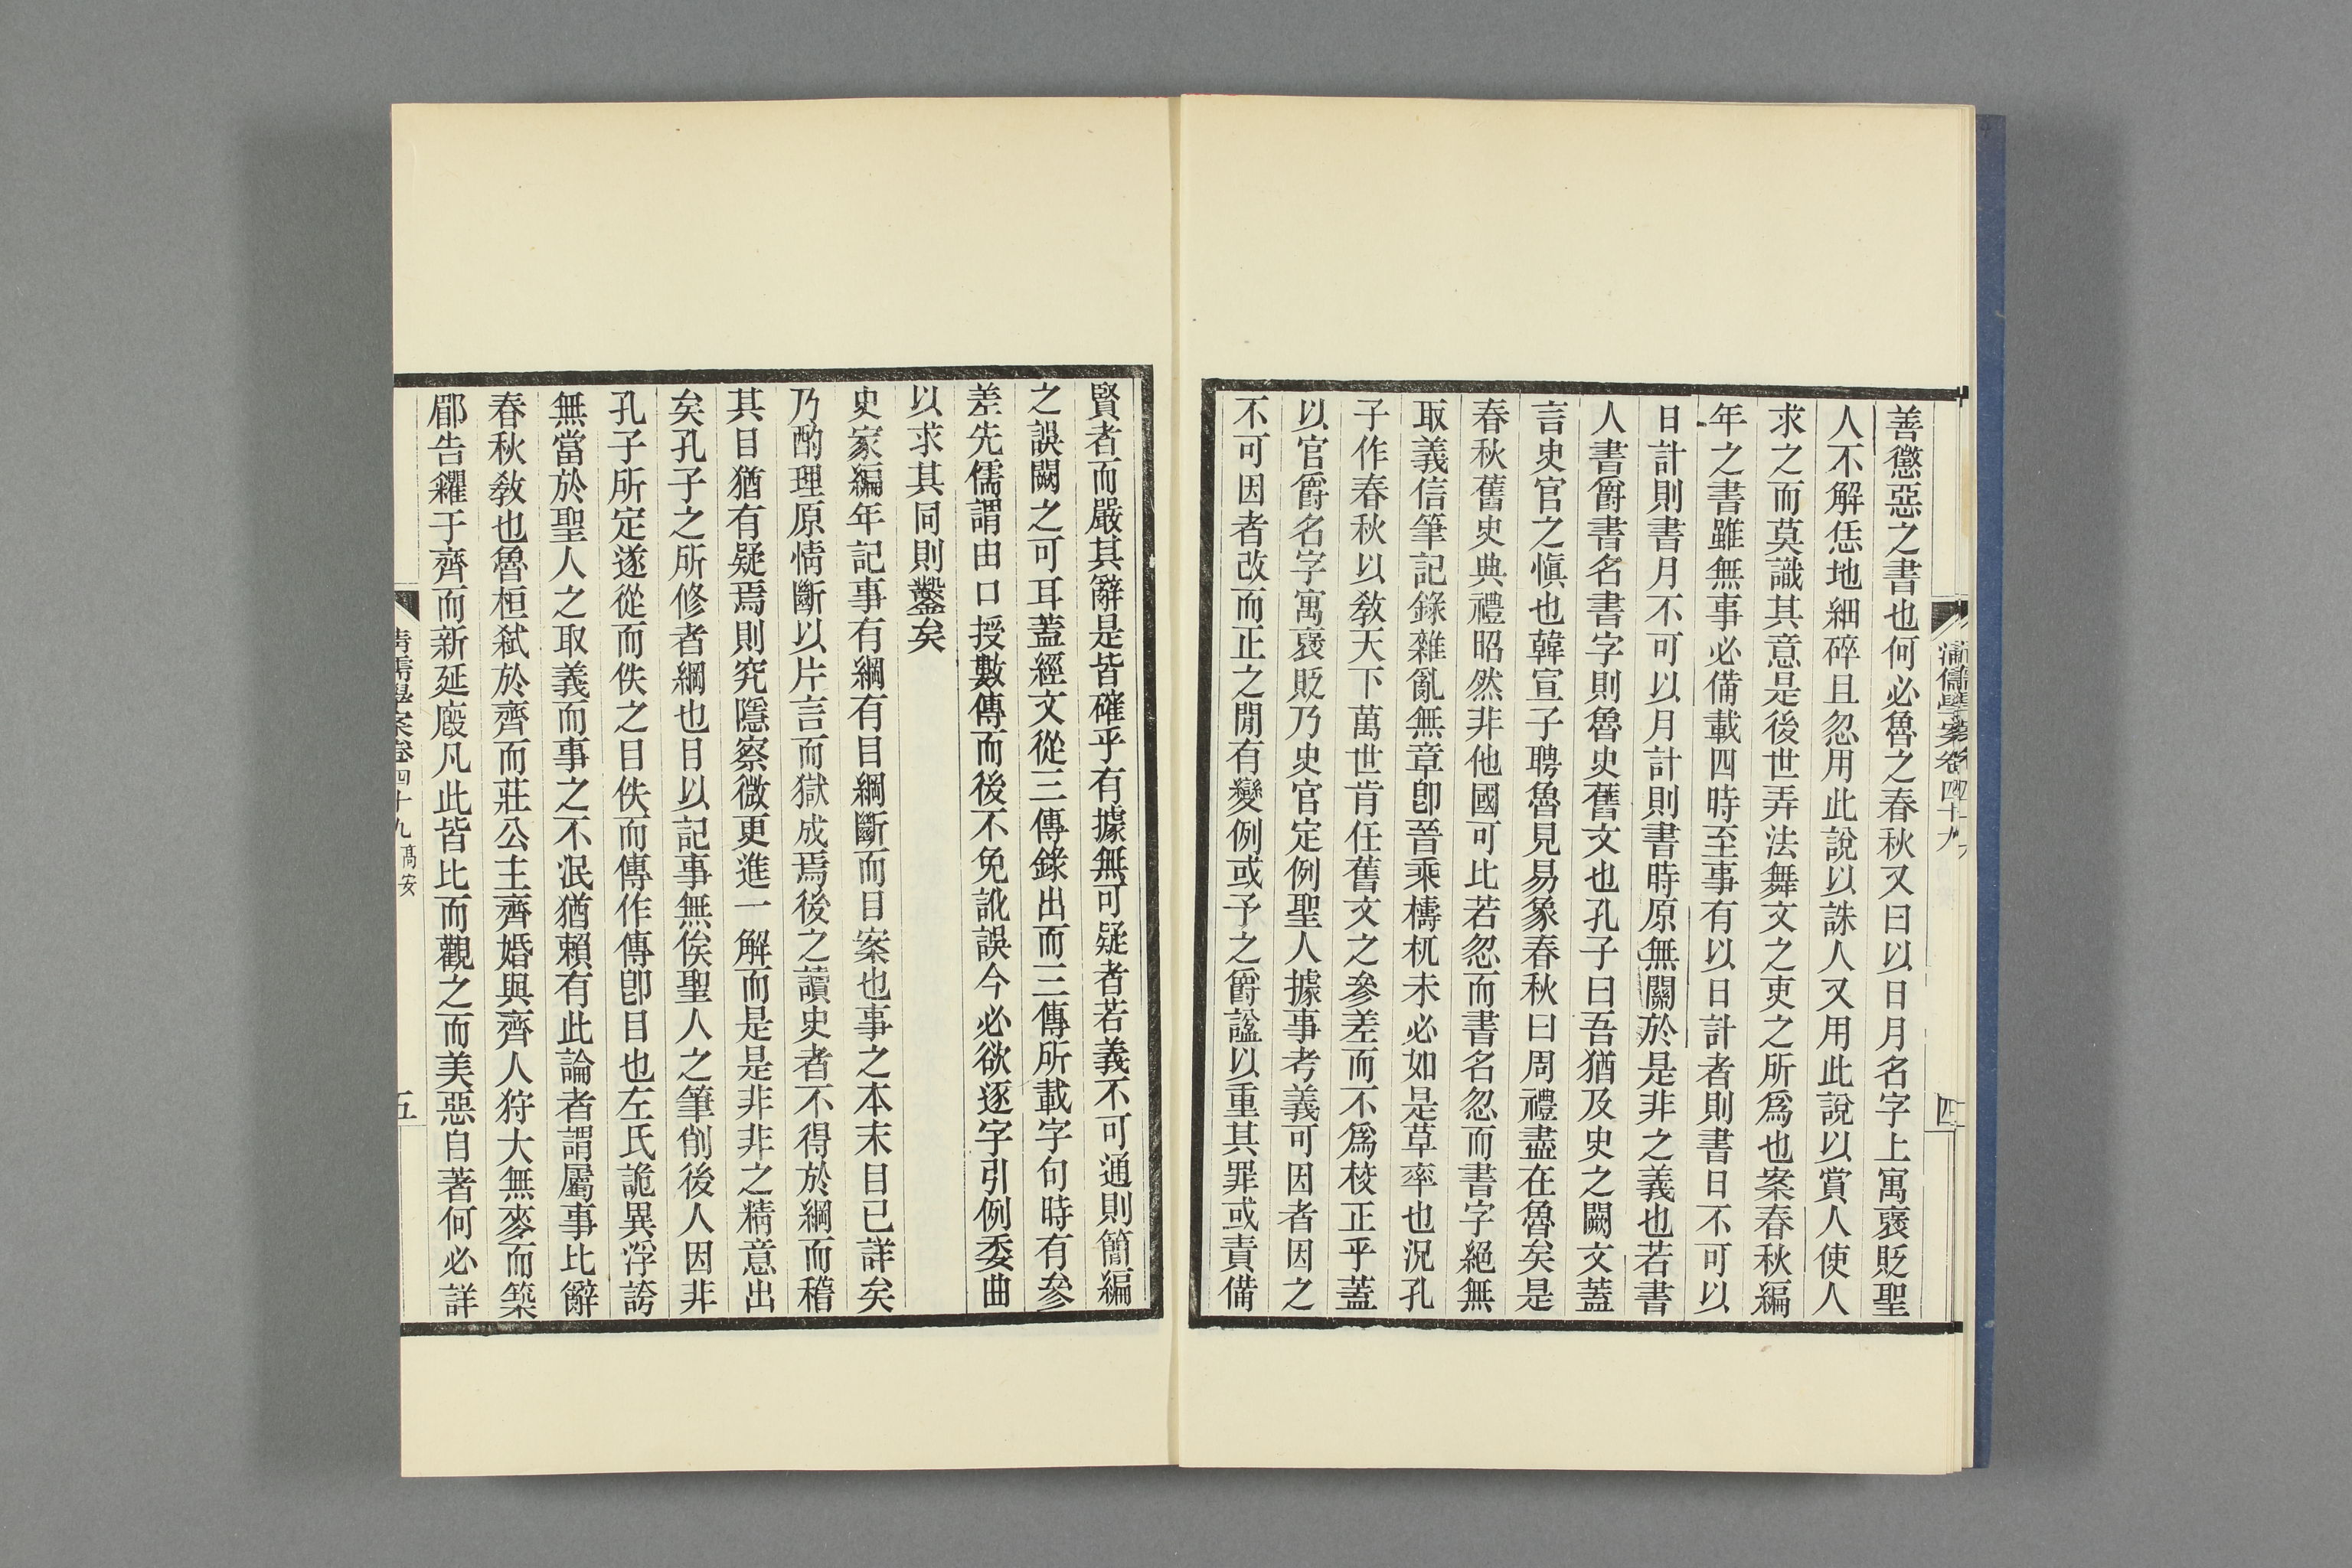 清儒學案卷四十九
四
善懲惡之書也何必魯之春秋又曰以日月名字上寓褒貶聖
人不解恁地細碎且忽用此說以誅人又用此說以賞人使人
求之而莫識其意是後世弄法舞文之吏之所爲也案春秋編
年之書雖無事必備載四時至事有以日計者則書日不可以
日計則書月不可以月計則書時原無關於是非之義也若書
人書爵書名書字則魯史舊文也孔子曰吾猶及史之闕文蓋
言史官之愼也韓宣子聘魯見易象春秋曰周禮盡在魯矣是
春秋舊史典禮昭然非他國可比若忽而書名忽而書字絕無
取義信筆記錄雜亂無章卽晉乘檮杌未必如是草率也況孔
子作春秋以敎天下萬世肯任舊文之參差而不爲校正乎蓋
以官爵名字寓褒貶乃史官定例聖人據事考義可因者因之
不可因者改而正之閒有變例或予之爵諡以重其罪或責備
賢者而嚴其辭是皆確乎有據無可疑者若義不可通則簡編
之誤闕之可耳蓋經文從三傳錄出而三傳所載字句時有參
差先儒謂由口授數傳而後不免訛誤今必欲逐字引例委曲
以求其同則鑿矣
史家編年記事有綱有目綱斷而目案也事之本末目已詳矣
乃酌理原情斷以片言而獄成焉後之讀史者不得於綱而稽
其目猶有疑焉則究隱察微更進一解而是是非非之精意出
矣孔子之所修者綱也目以記事無俟聖人之筆削後人因非
孔子所定遂從而佚之目佚而傳作傳卽目也左氏詭異浮誇
無當於聖人之取義而事之不泯猶賴有此論者謂屬事比辭
春秋敎也魯桓弒於齊而莊公主齊婚與齊人狩大無麥而築
郿告糴于齊而新延廏凡此皆比而觀之而美惡自著何必詳
清儒學案卷四十九高安
五